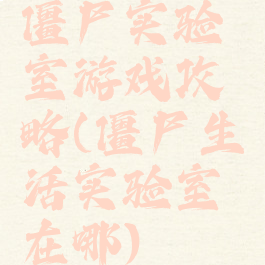 僵尸实验
室游戏攻
略(僵尸生
活实验室
在哪)